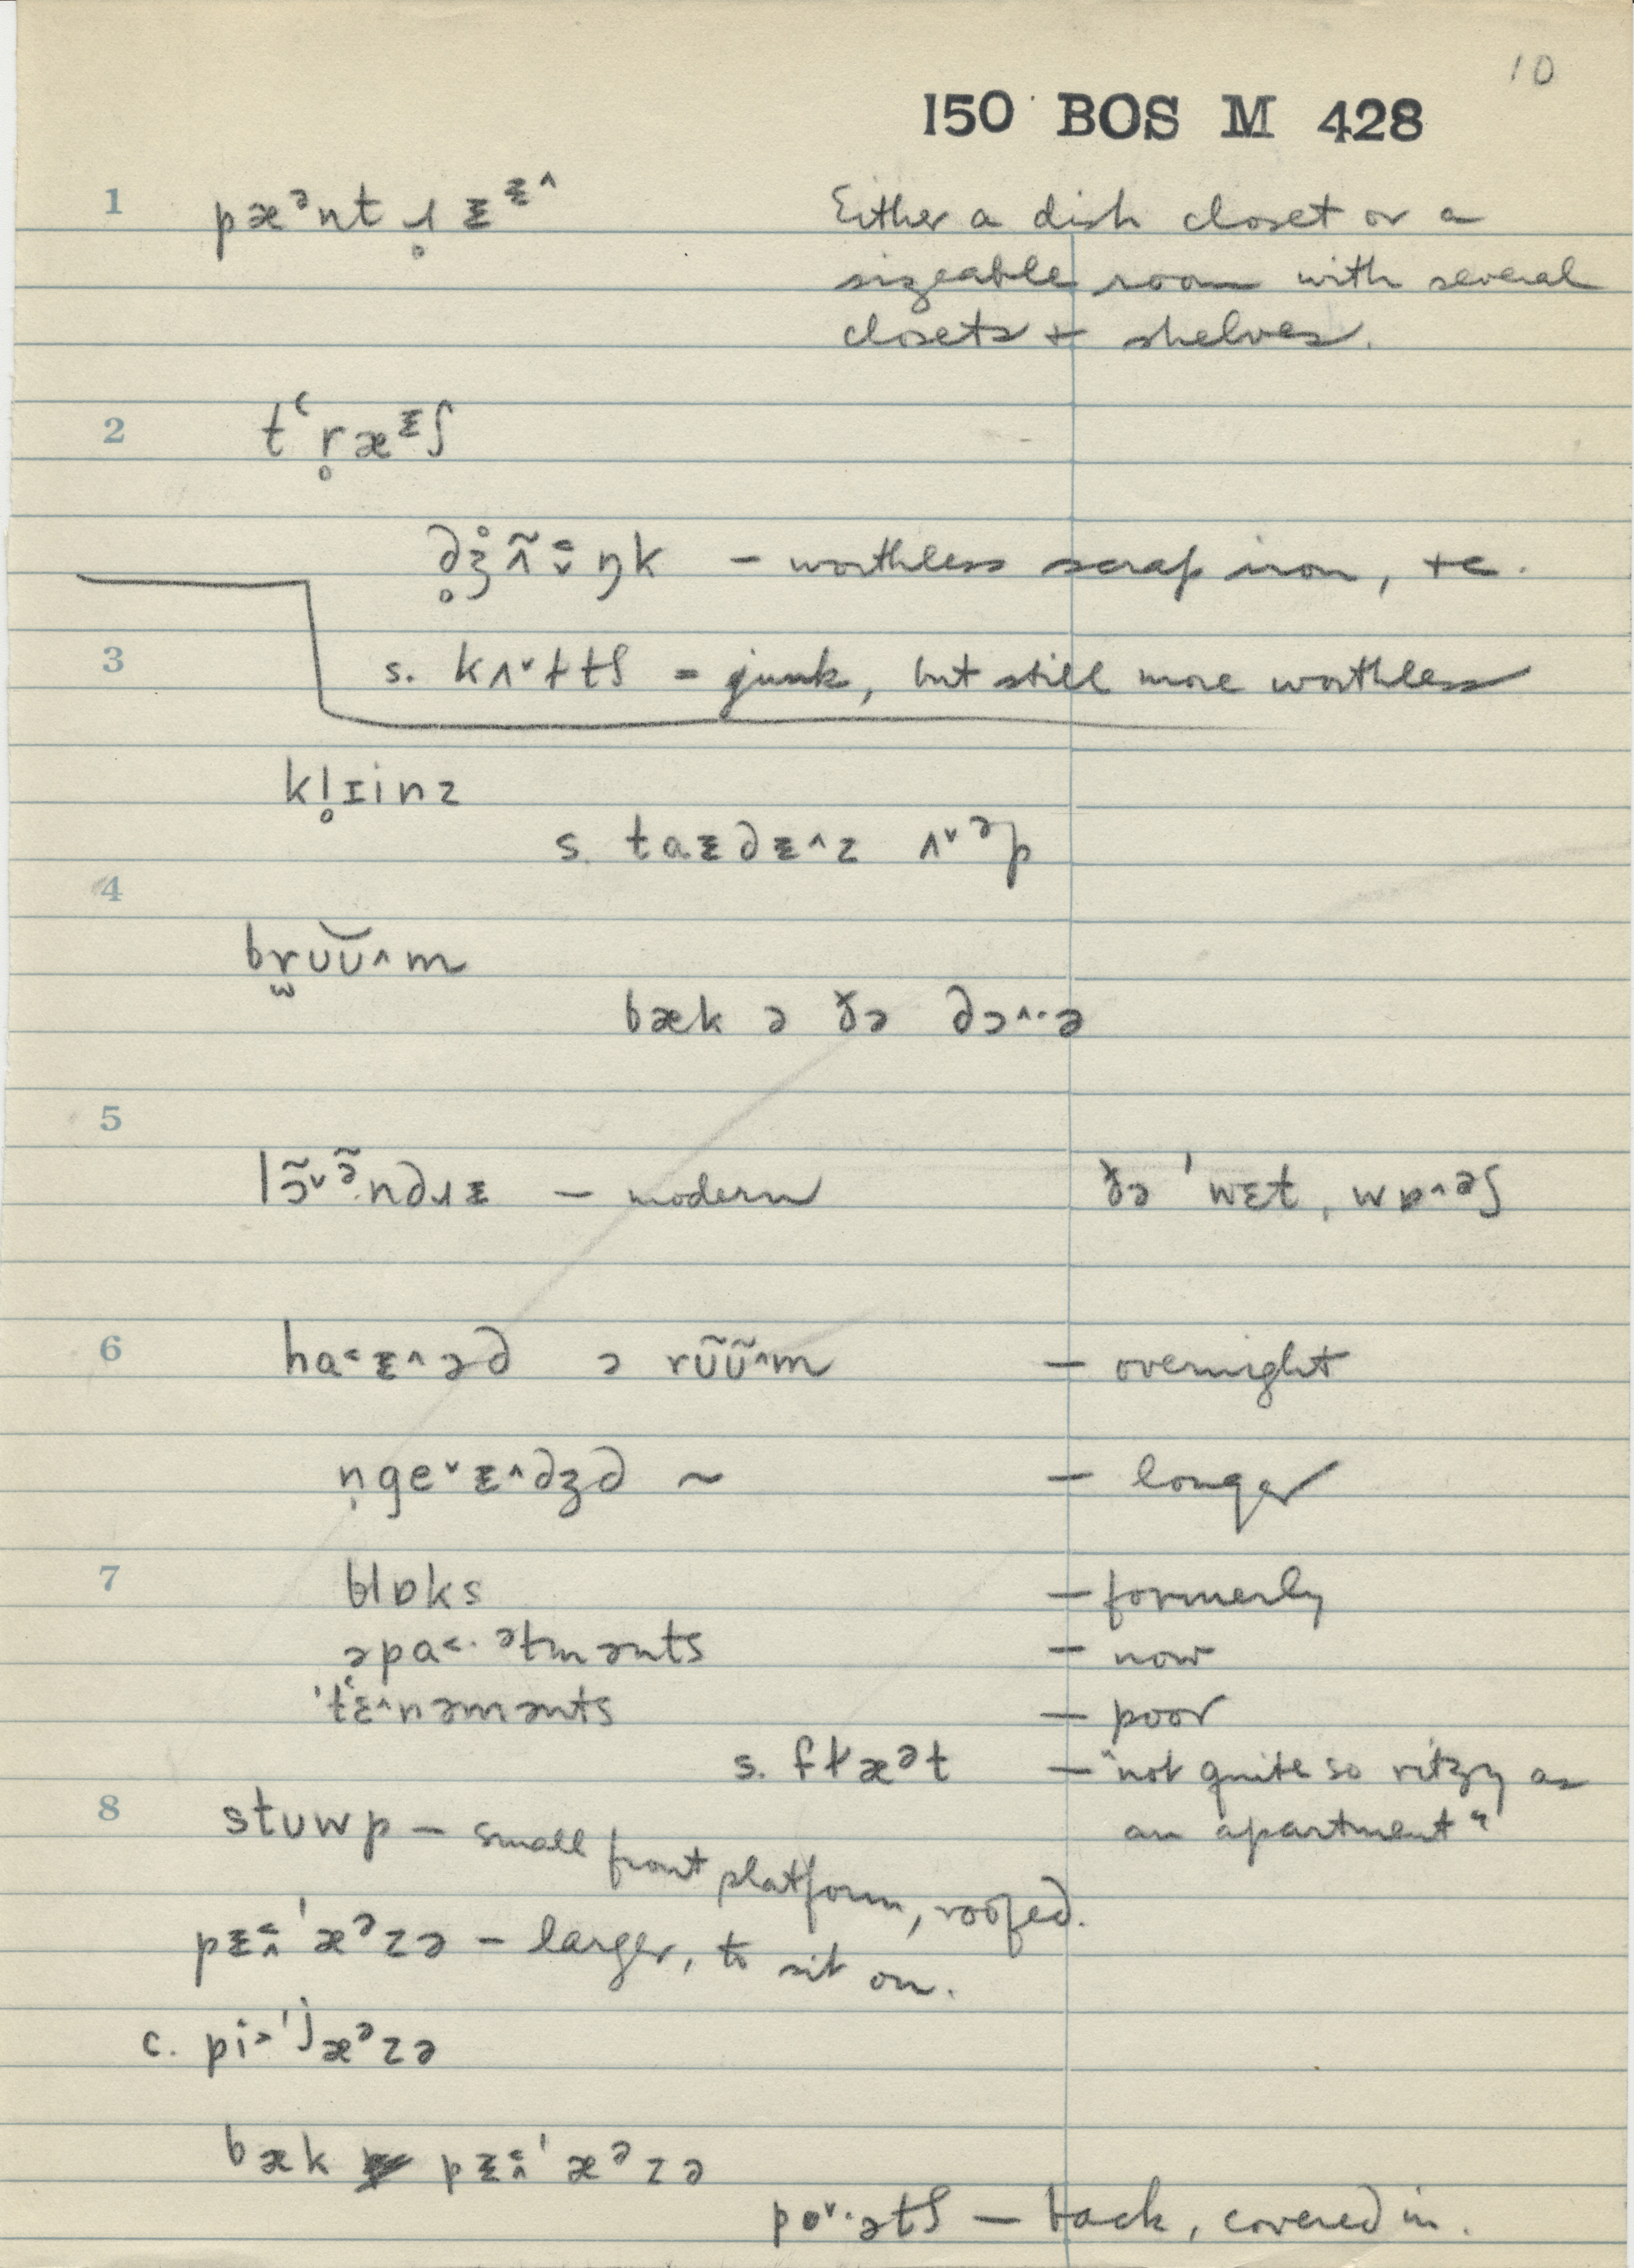 10
150 BOS M 428
1 pæᵊnt ɹ̥ ᵻ ᵻ^ Either a dish closet or a
sizeable room with several
closets + shelves.
2 tʻr̥æᵻʃ
– worthless scrap iron, +c.
3 s. kʌ˅ltʃ = junk, but still more worthless
kl̥ɪinz
s. taᵻdᵻ^z ʌ˅ᵊp
4
brʊʊ̆^m
bæk ə ðə dɔ^·ə
5
lɔ̃˅ə̃ndɹᵻ – modern ðə ˈwɛt, wɒ^əʃ
6 ha˂ᵻ^əd ə rʊ̃ʊ̃^m – overnight
n̩ge˅ᵻ^dʒd ~ – longer
7 blɒks – formerly
əpa˂·ᵊtmənts – now
ˈtʻɛ^nəmənts – poor
s. flæᵊt – "not quite so ritzy as
an apartment"
8 stʊwp – small front platform, roofed.
pᵻˈæᵊzə – larger, to sit on.
c. pi˃ˈjæᵊzə
bæk pᵻˈæᵊzə
po˅·ətʃ – back, covered in.